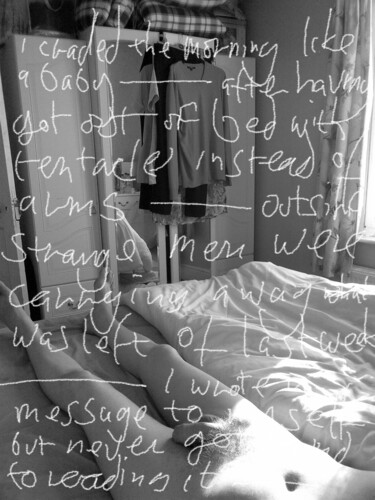 I cradled the morning like
a baby —— after having
got out of bed with
tentacles instead of
arms —— outside
strange men were
carrying away what
was left of last week
—— I wrote a
message to myself
but never got round
to reading it